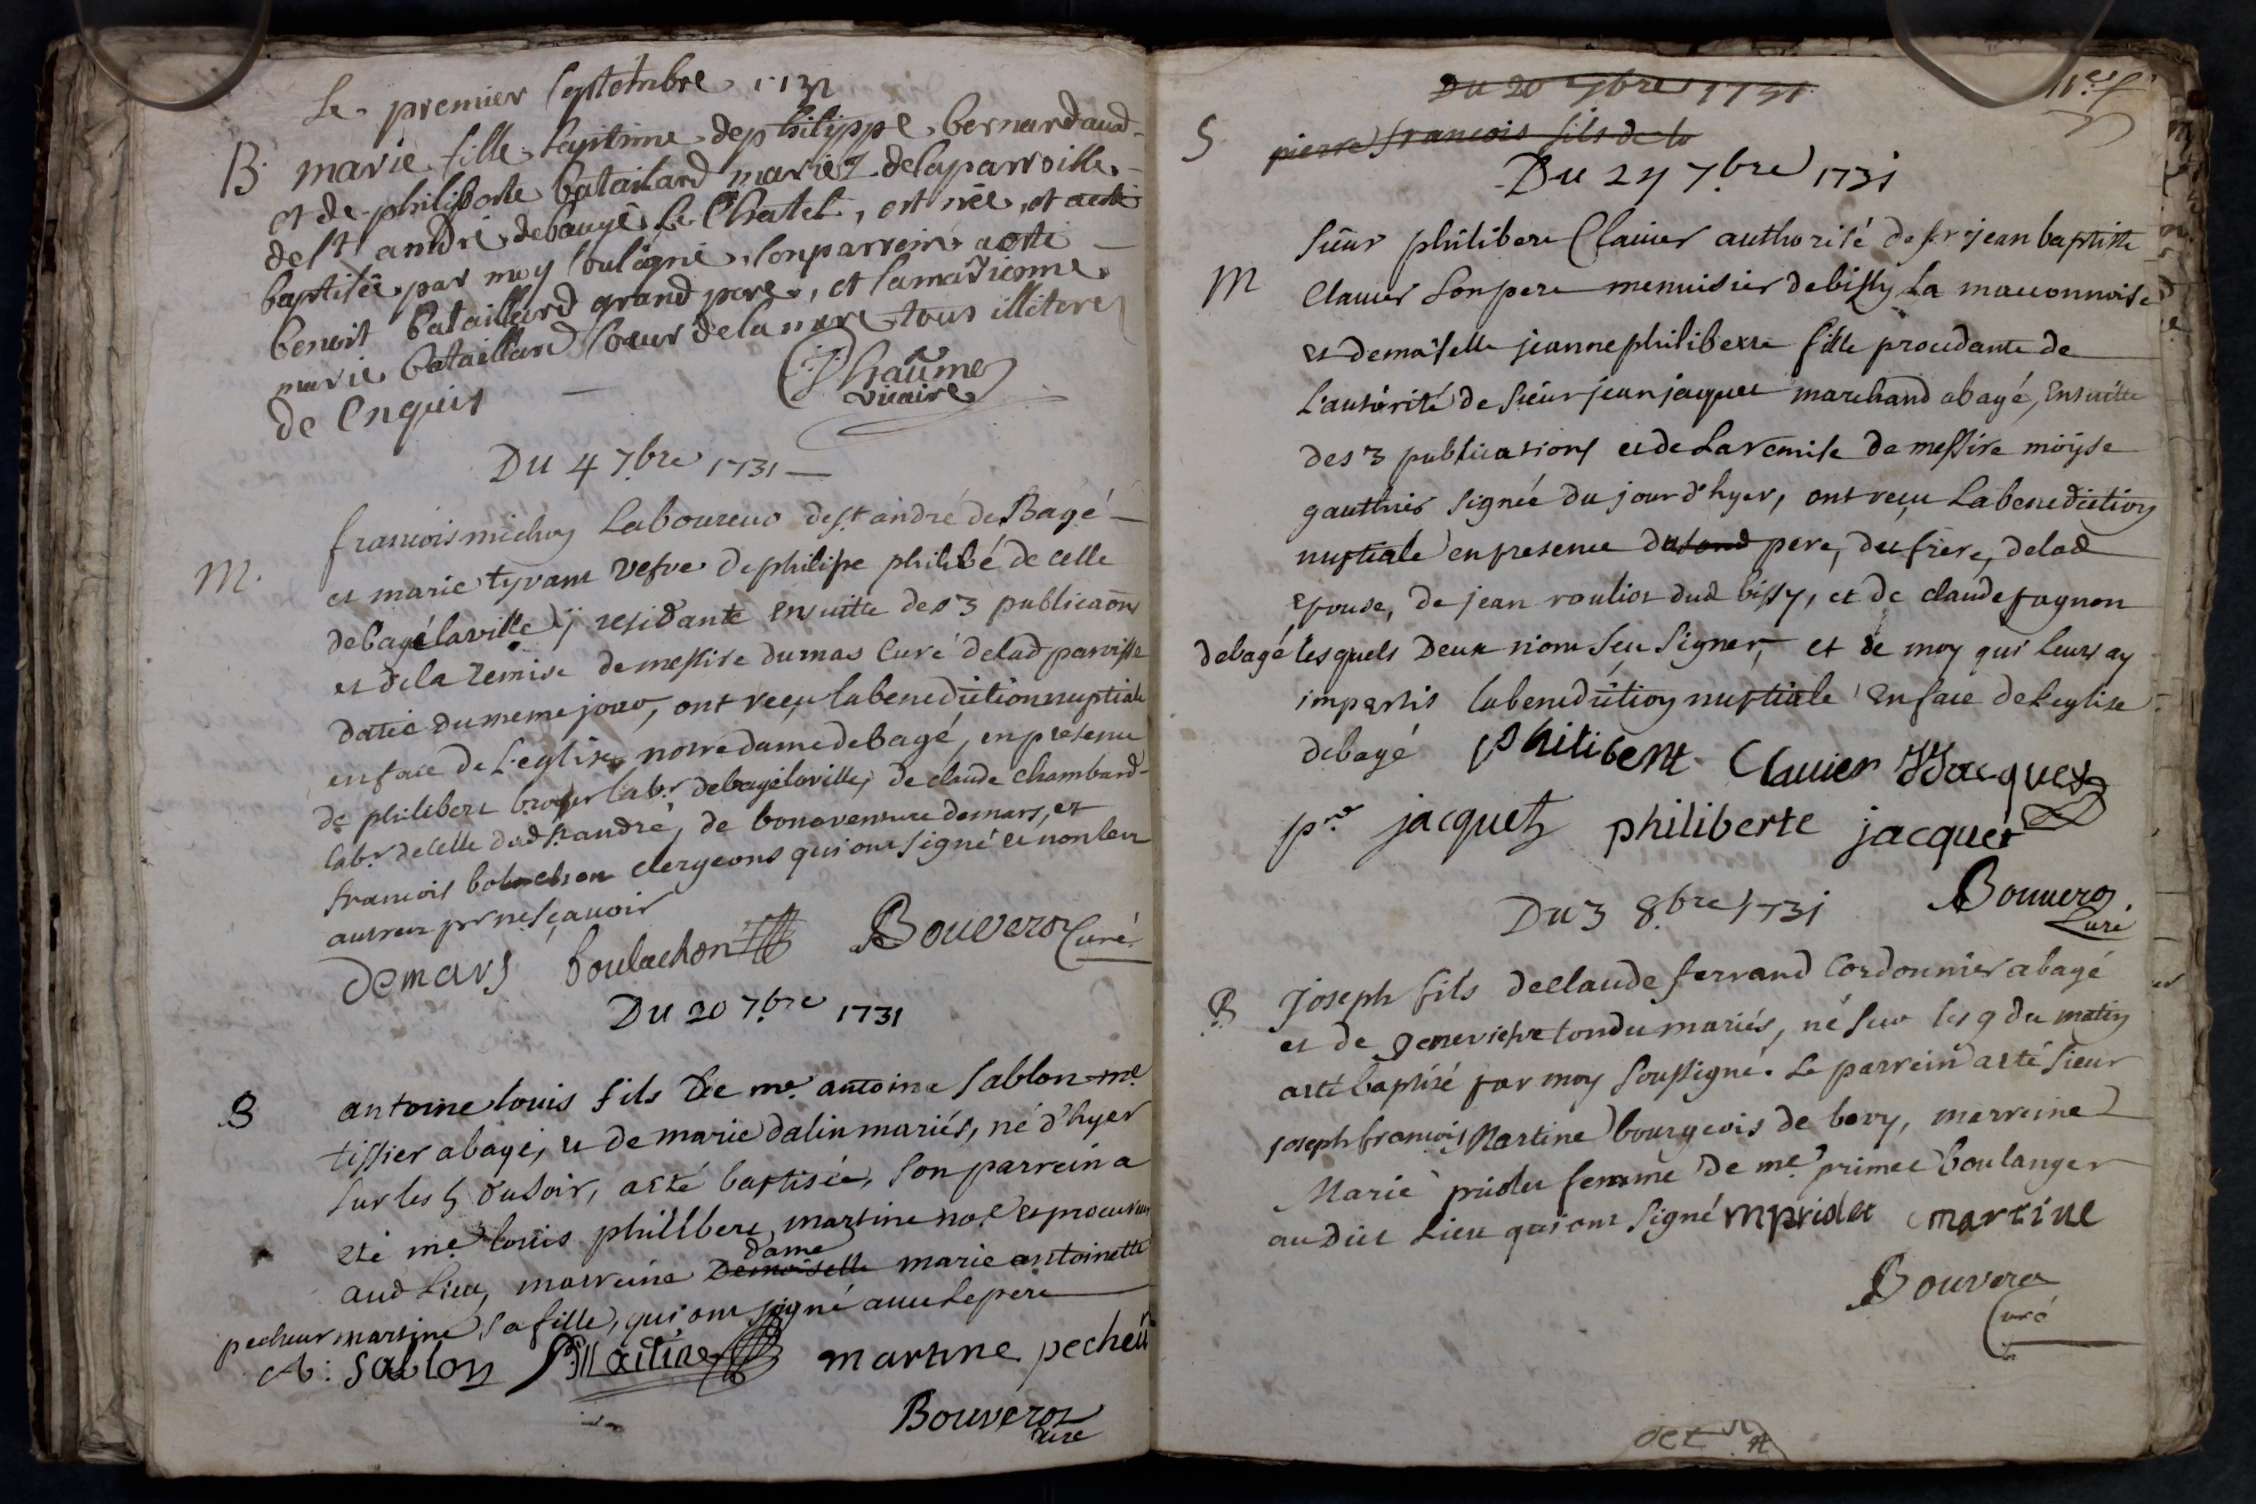 Le premier septembre 1731
B. marie fille legitime de philippe bernardaud
et de philiberte bataillard mariez de la parroisse
de st andré de baugé le Chatel, est née, et a esté
baptisée par moy soubsigné, son parrein a esté
benoit bataillard grand pere, et sa marienne
marie bataillard soeur de la mere tous illiteres
de Enquis
Chaûme
vicaire
Du 4 7.bre 1731
francois michon Laboureur de st andré de Bagé
M. et marie tyvant vefve de philipe philibé de celle
de bagé la ville y residante ensuitte des 3 publicaõns
et de la remise de messire dumas Curé de lad parroisse
datée du meme jour, ont reçu la benediction nuptiale
en face de L'eglise notre dame de bagé, en presence
de philibert broyer lab.r de bagé la ville, de claude chambard
lab.r de celle dud st andré, de bonaventure demars, et
francois bolachon clergeons qui ont signé et non les
autres pr ne sçavoir
demars boulachon Bouveron
Curé
Du 20 7.bre 1731
B antoine louis fils de me. antoine Sablon me.
tissier a bagé, et de marie dalin mariés, né d'hyer
sur les 5 du soir, a esté baptisée, son parrein a
eté me. louis philibert martine no.e et procureur
dame
aud Lieu, marreine Demoiselle marie antoinette
pecheur martine sa fille, qui ont signé avec le pere
A: Sablon Martine martine pecheur
Bouveron
Curé
Du 20 7bre 1731
S pierre francois fils de
Du 27 7.bre 1731
Sieur philibert Clavier authorisé de sr jean baptiste
M Clavier son pere menuisier de bissy La maconnoise
et demoiselle jeanne philiberte fille procedante de
L'autorité de sieur jean jaquet marchand a bagé, Ensuitte
des 3 publications et de La remise de messire moyse
gauthier signée du jour d'hyer, ont reçu La benediction
nuptiale en presence du pere, du frere, de lad
epouse, de jean roulior dud bissy, et de claude pagnon
de bagé lesquels Deux n'ont sçu signer, et de moy qui leurs ay
impartis la benediction nuptiale en face de l'eglise
de bagé philibert Clavier JJacquet
pre jacquet philiberte jacquet
Bouveron
Curé
Du 3 8.bre 1731
B Joseph fils de claude ferrand Cordonnier a bagé
et de genevieve tondu mariés, né sur les 9 du matin
a eté baptisé par moy soussigné. Le parrein a eté sieur
joseph francois Martine bourgeois de bery, marreine
Marie pridet femme de me. primet boulanger
audit Lieu qui ont signé mpridet martine
Bouveron
Curé